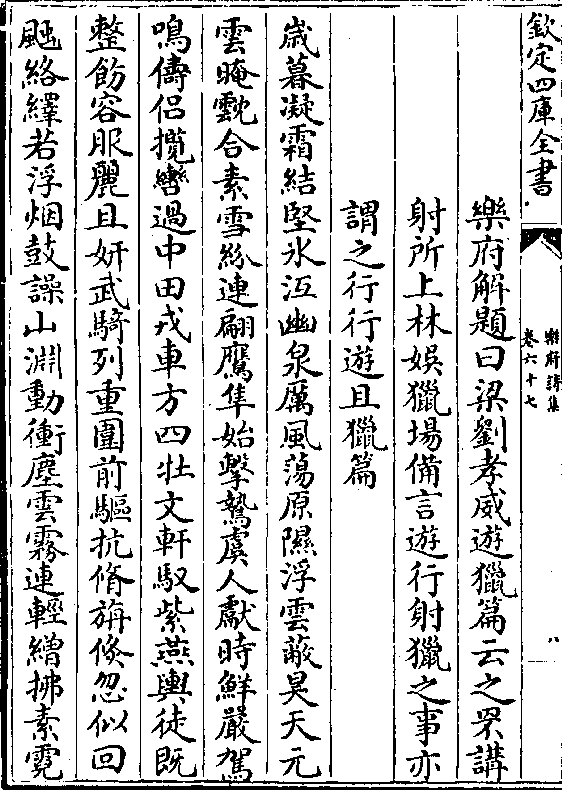 欽定四庫全書
樂府詩集
卷六十七
八
樂府解題曰梁劉孝威遊獵篇云之罘講
射所上林娛獵場備言遊行射獵之事亦
謂之行行遊且獵篇
歳暮凝霜結堅氷沍幽泉厲風蕩原隰浮雲蔽昊天元
雲晻䨴合素雪紛連翩鷹隼始擊鷙虞人獻時鮮嚴駕
鳴儔侣攬轡過中田戎車方四牡文軒馭紫燕輿徒既
整飭容服麗且妍武騎列重圍前驅抗脩旃倐忽似回
飇絡繹若浮烟鼓譟山淵動衝塵雲霧連輕繒拂素霓